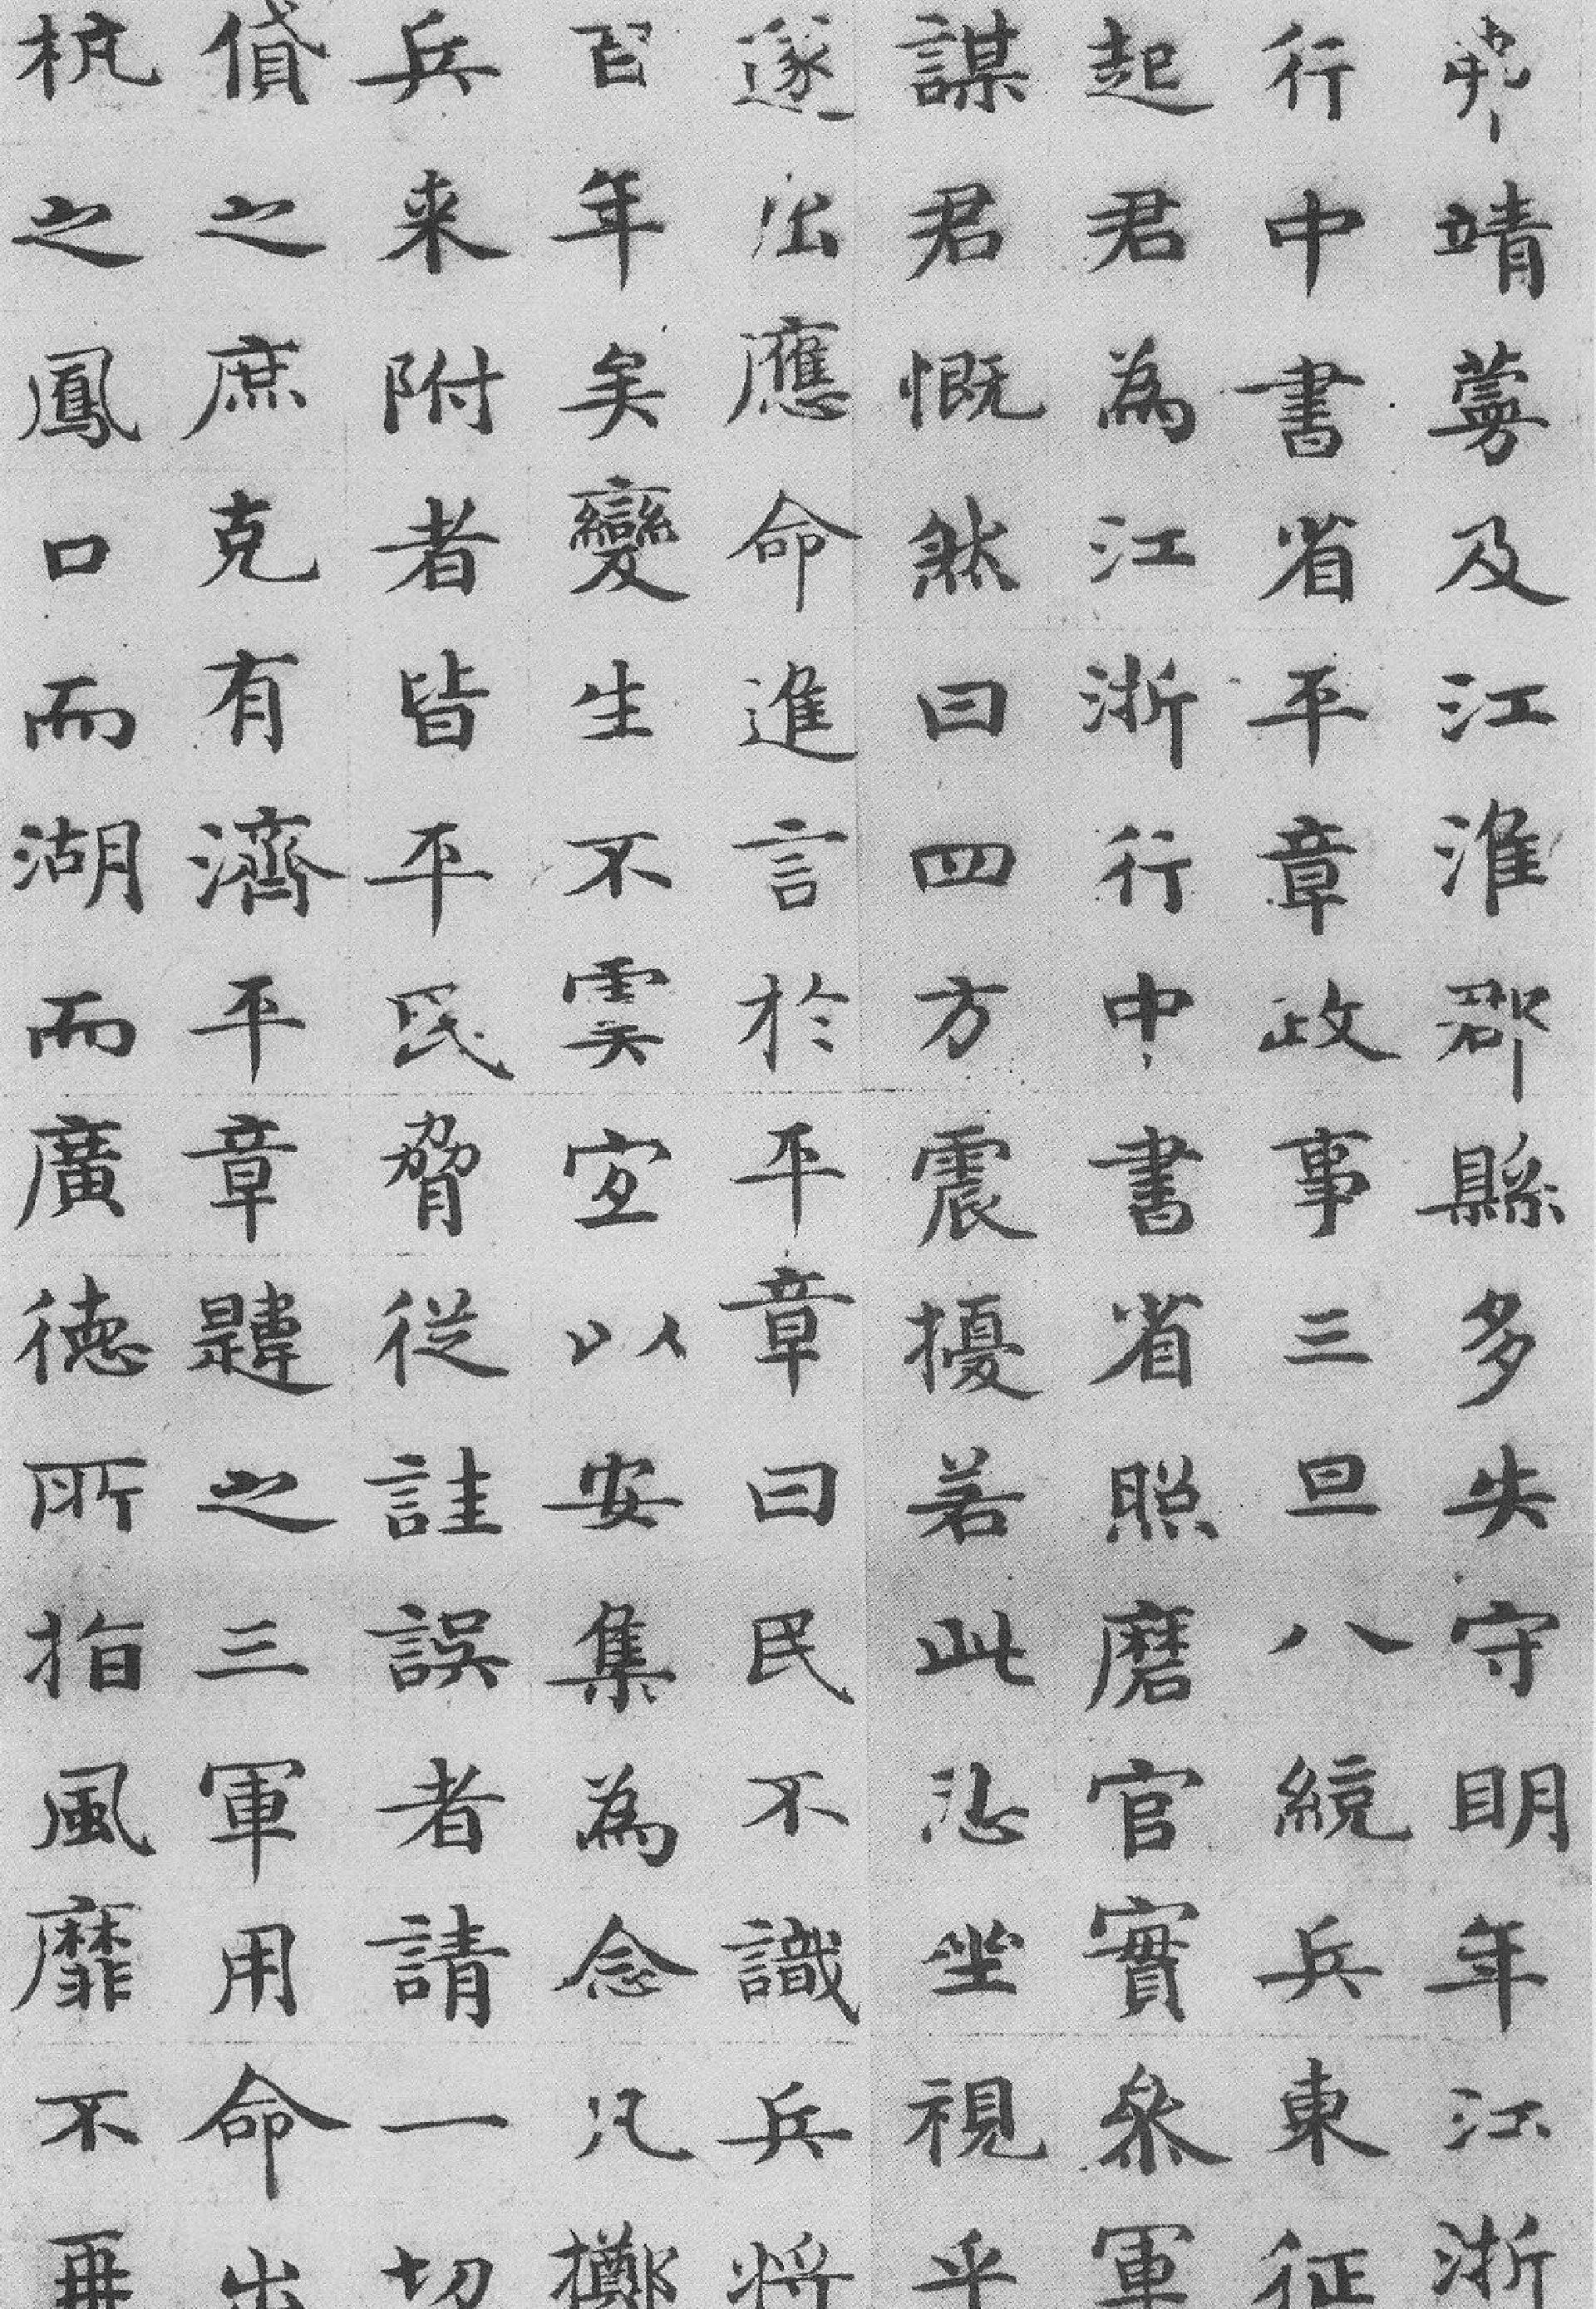 靖蘄及江淮郡縣多失守明年江浙
行中書省平章政事三旦八統兵東征
起君為江浙行中書省照磨官實叅軍
謀君慨然曰四方震擾若此忍坐視乎
遂出應命進言於平章曰民不識兵將
百年矣變生不虞宜以安集為念凡擲
兵来附者皆平民脅從詿誤者請一切
貸之庶克有濟平章韙之三軍用命出
杭之鳳口而湖而廣德所指風靡不再